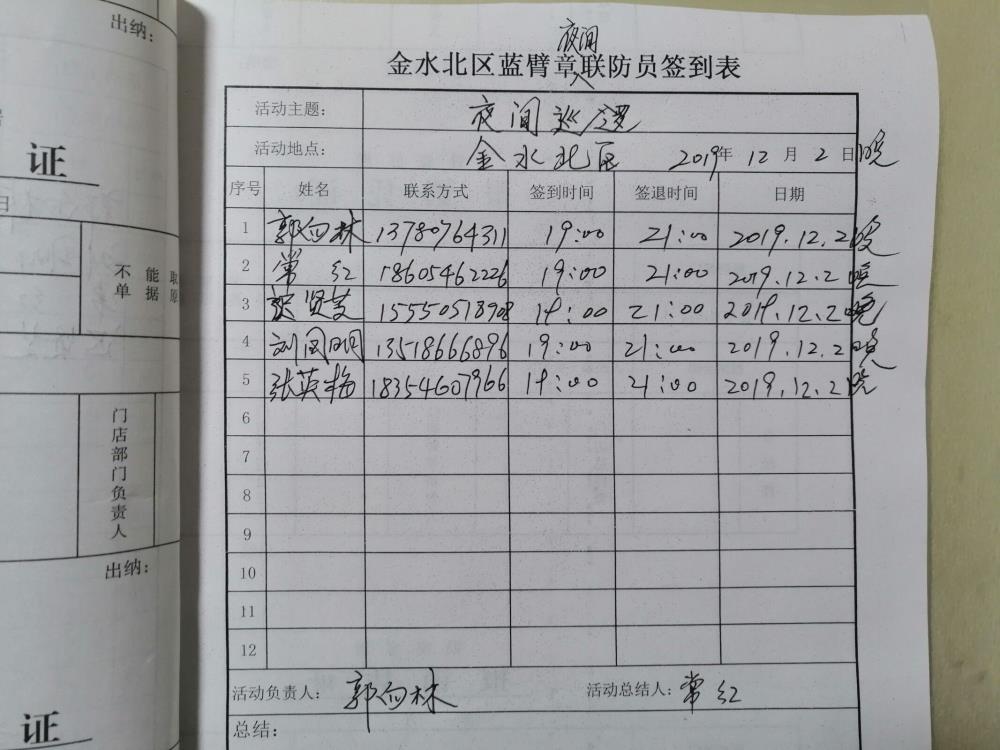 出纳：
证
日
不能取
单据原
门店部门负责人
出纳：
证
夜间
金水北区蓝臂章联防员签到表
活动主题： 夜间巡逻
活动地点： 金水北区 2019年12月2日晚
序号 姓名 联系方式 签到时间 签退时间 日期
1 郭向林 13780764311 19:00 21:00 2019.12.2晚
2 常红 18605462226 19:00 21:00 2019.12.2晚
3 张贤芝 15550518908 19:00 21:00 2019.12.2晚
4 刘国明 13518666896 19:00 21:00 2019.12.2晚
5 张英梅 18354607966 19:00 21:00 2019.12.2晚
6
7
8
9
10
11
12
活动负责人： 郭向林 活动总结人： 常红
总结：